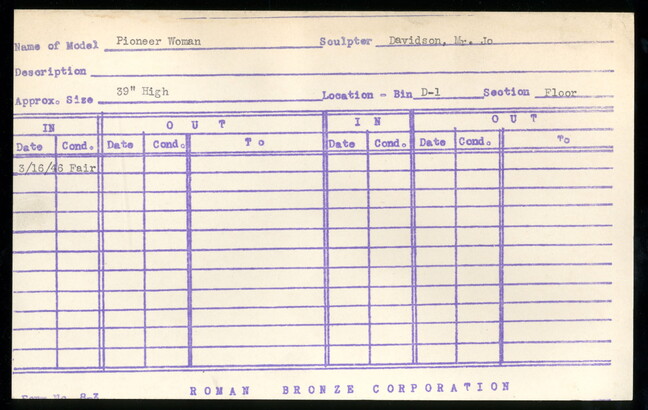 Name of Model Pioneer Woman Sculptor Davidson, Mr. Jo
Description
Approx. Size 39" High Location - Bin D-1 Section Floor
IN OUT IN OUT
Date Cond. Date Cond. To Date Cond. Date Cond. To
3/16/46 Fair
Form No. 8-3
ROMAN BRONZE CORPORATION